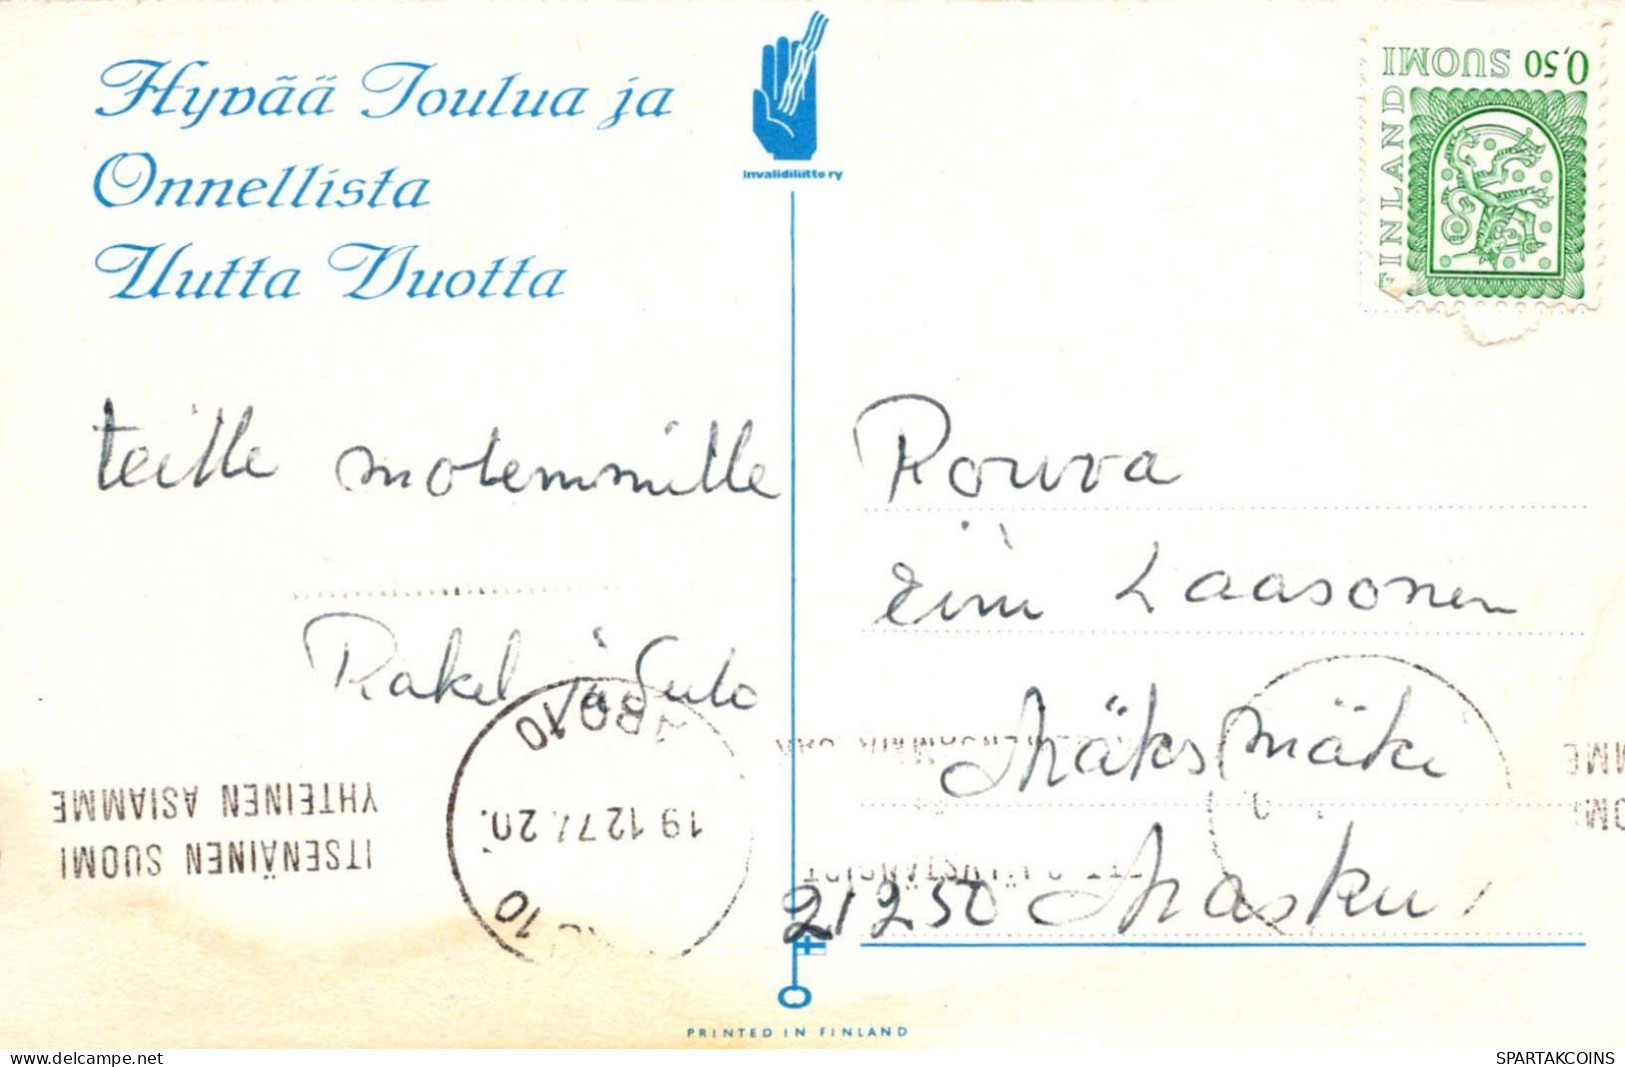 Hyvää Joulua ja
Onnellista
Uutta Vuotta
invalidiliitto ry
0,50 SUOMI
FINLAND
teille molemmille
Rakel ja Sulo
Rouva
Eini Laasonen
Mäksmäki
21250 Masku
ITSENÄINEN SUOMI
YHTEINEN ASIAMME
19.12.77.20
10
PRINTED IN FINLAND
SPARTAKCOINS